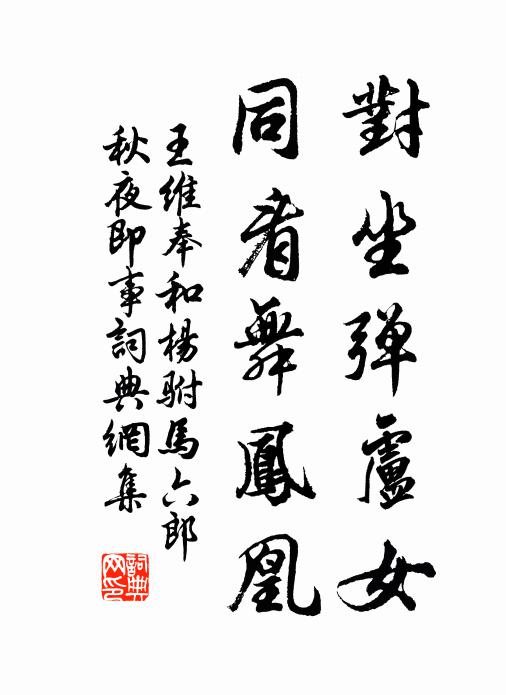 對坐弹盧女
同看舞鳳凰
王維奉和楊駙馬六郎
秋夜即事詞典網集
詞典網印